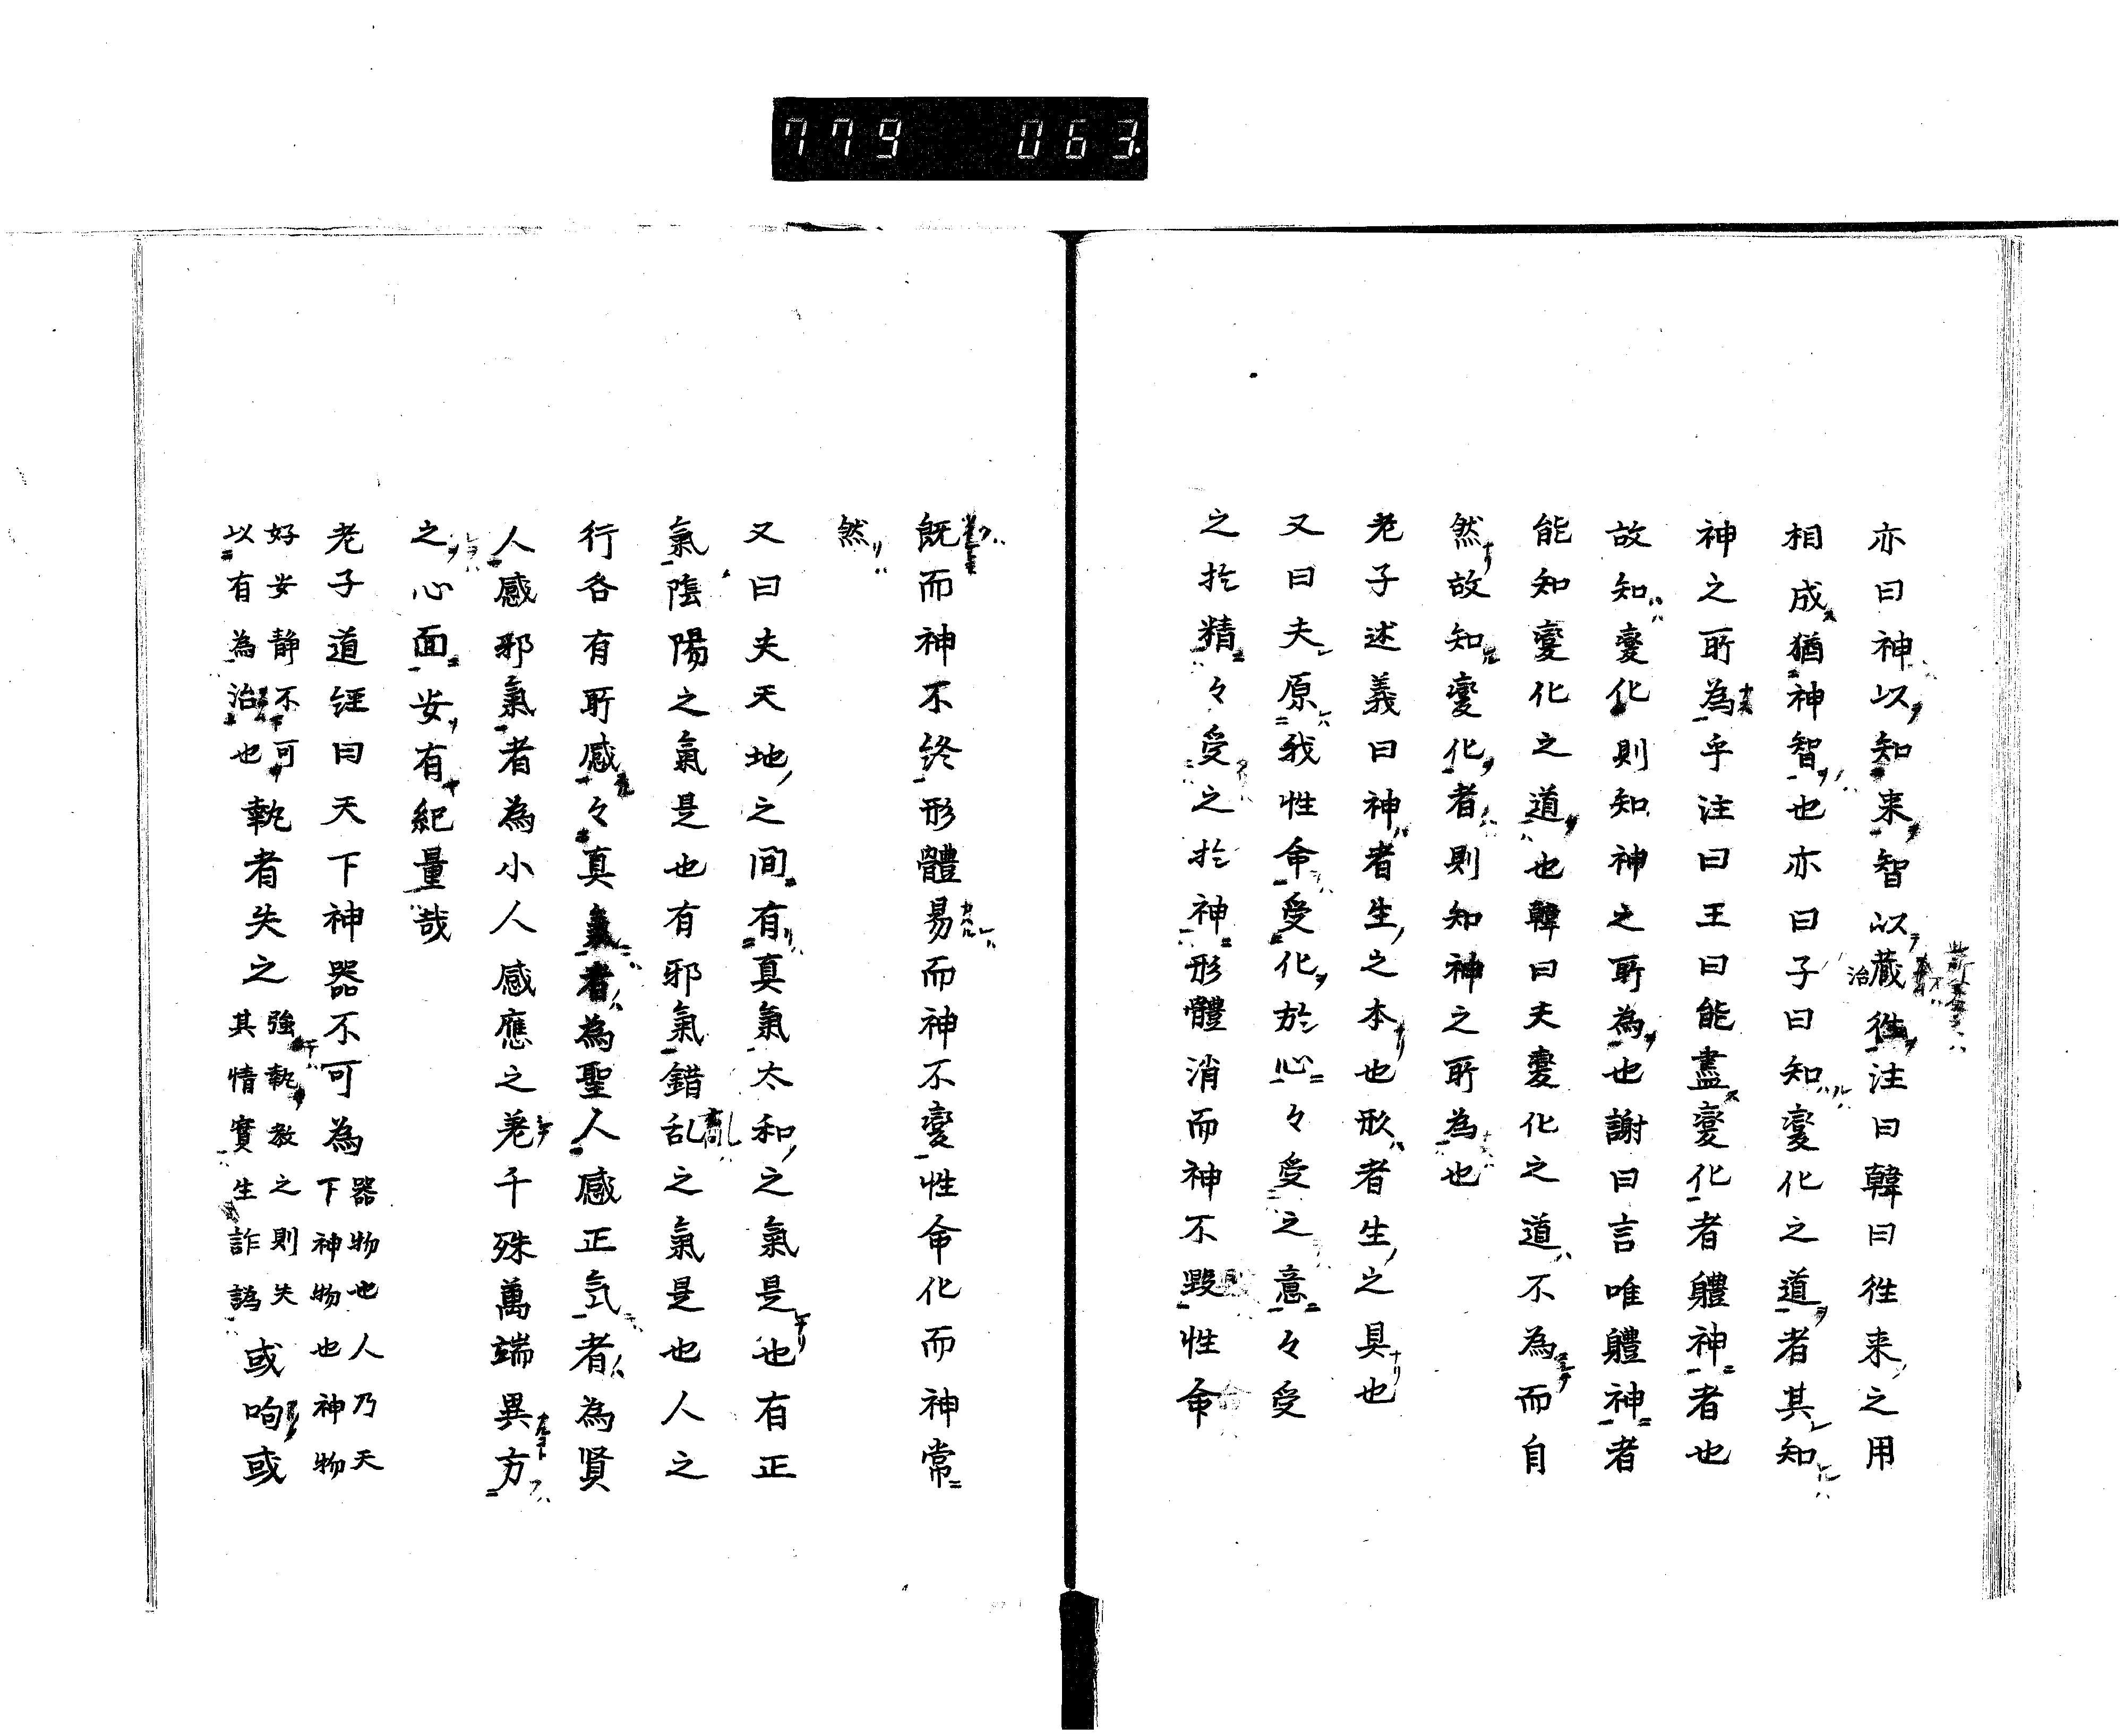 779 063
亦曰神以知来智以蔵徃注曰韓曰徃来之用
相成猶神智也亦曰子曰知變化之道者其知
神之所為乎注曰王曰能盡變化者軆神者也
故知變化則知神之所為也謝曰言唯軆神者
能知變化之道也韓曰夫變化之道不為而自
然故知變化者則知神之所為也
老子述義曰神者生之本也形者生之具也
又曰夫原我性命受化於心々受之意々受
之於精々受之於神形體消而神不毀性命
既而神不終形體易而神不變性命化而神常
然
又曰夫天地之間有真氣太和之氣是也有正
氣陰陽之氣是也有邪氣錯乱之氣是也人之
行各有所感々真氣者為聖人感正気者為賢
人感邪氣者為小人感應之差千殊萬端異方
之心面安有紀量哉
老子道経曰天下神器不可為器物也人乃天下神物也神物
好安静不可以有為治也執者失之強執教之則失其情實生詐譌或呴或